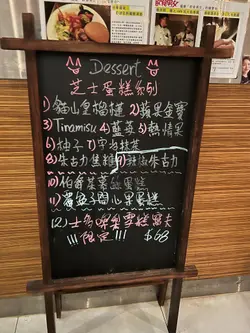 Dessert
芝士蛋糕系列
1) 貓山皇榴槤 2) 蘋果金寶
3) Tinamisu 4) 藍莓 5) 熱情果
6) 柚子 7) 宇治抹茶
8) 朱古力焦糖 9) 朱古力
10) 伯爵茶
11) 開心果蛋糕
12) 士多啤梨雪糕窩夫
!!! 限定 !!! $68